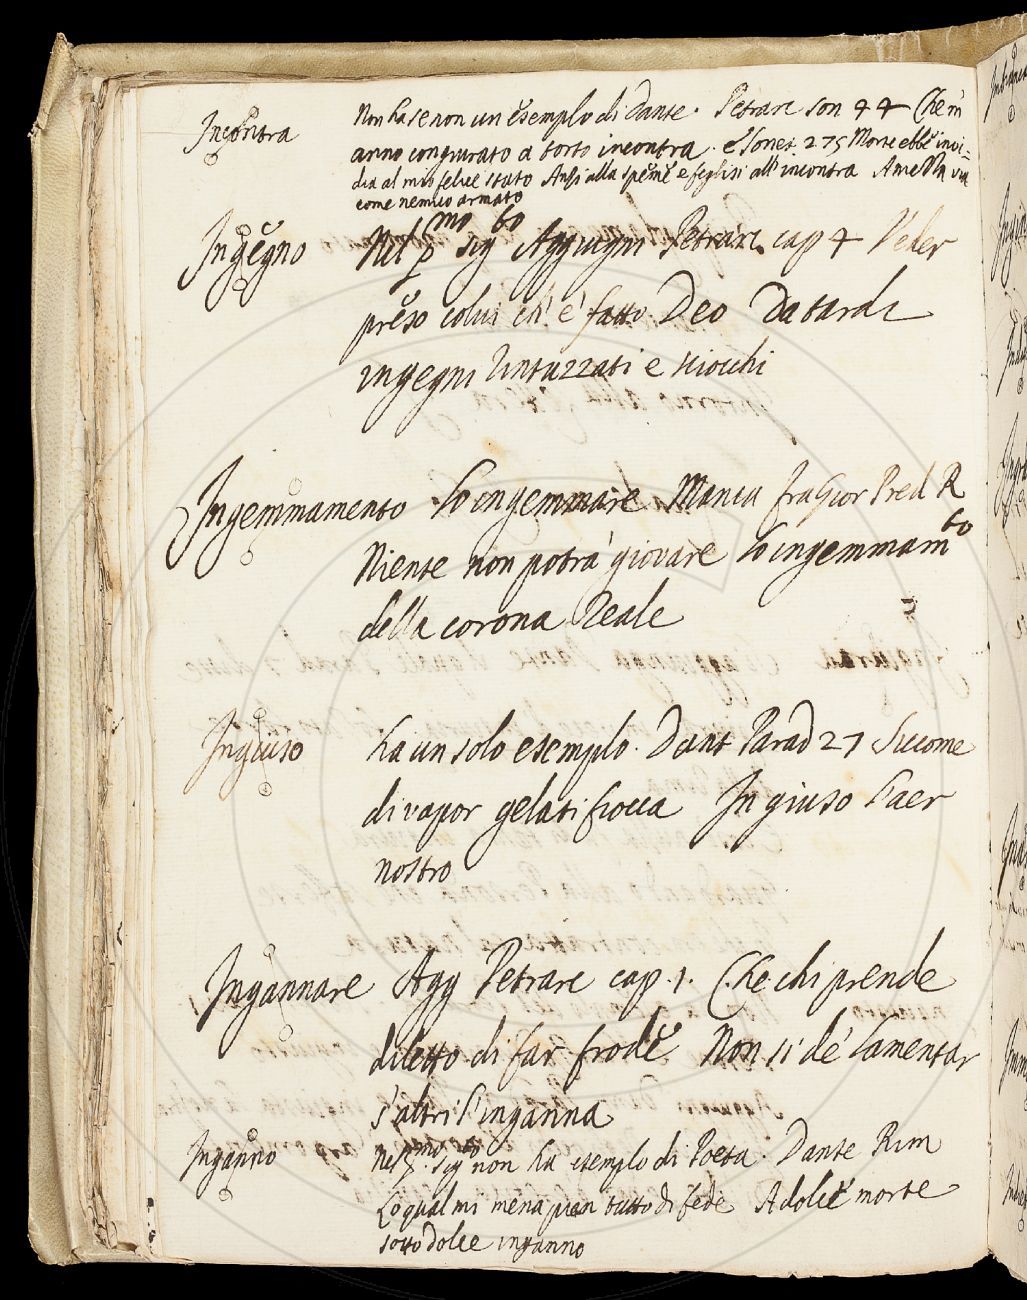 Incontra
Non ha se non un esempio di Dante. Petrarc son 44 Che m'
anno congiurato a torto incontra. e Sonet. 275 Morte ebbe invi-
dia al mio felice stato Anzi alla speme e feglisi all'incontra A mezza via
come nemico armato
Ingegno
Nel pmo sigto Aggiugni Petrarc. cap 4 Veder
preso colui ch'è fatto Deo Da tardi
ingegni rintuzzati e sciocchi
Ingemmamento
Lo ingemmare Manca fra Gior Pred R
Niente non potrà giovare lo ingemmamto
della corona Reale
Ingiuso
ha un solo esempio. Dant Parad 27 Siccome
di vapor gelati fiocca In giuso l'aer
nostro
Ingannare
Agg Petrarc cap. 1. Che chi prende
diletto di far frode Non si de' lamentar
s'altri l'inganna
Inganno
Nel pmo sigto non ha esempio di Poeta. Dante Rim
Lo qual mi mena pien tutto di fede A dolce morte
sotto dolce inganno